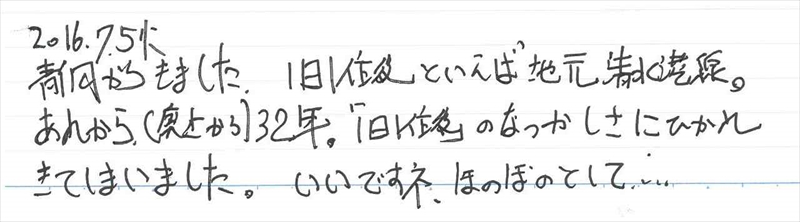 2016.7.5火
静岡からきました. 1日1往復といえば地元清水港線。
あれから(廃止から)32年。「1日1往復」のなつかしさにひかれ
きてしまいました。いいですネ、ほのぼのとして....